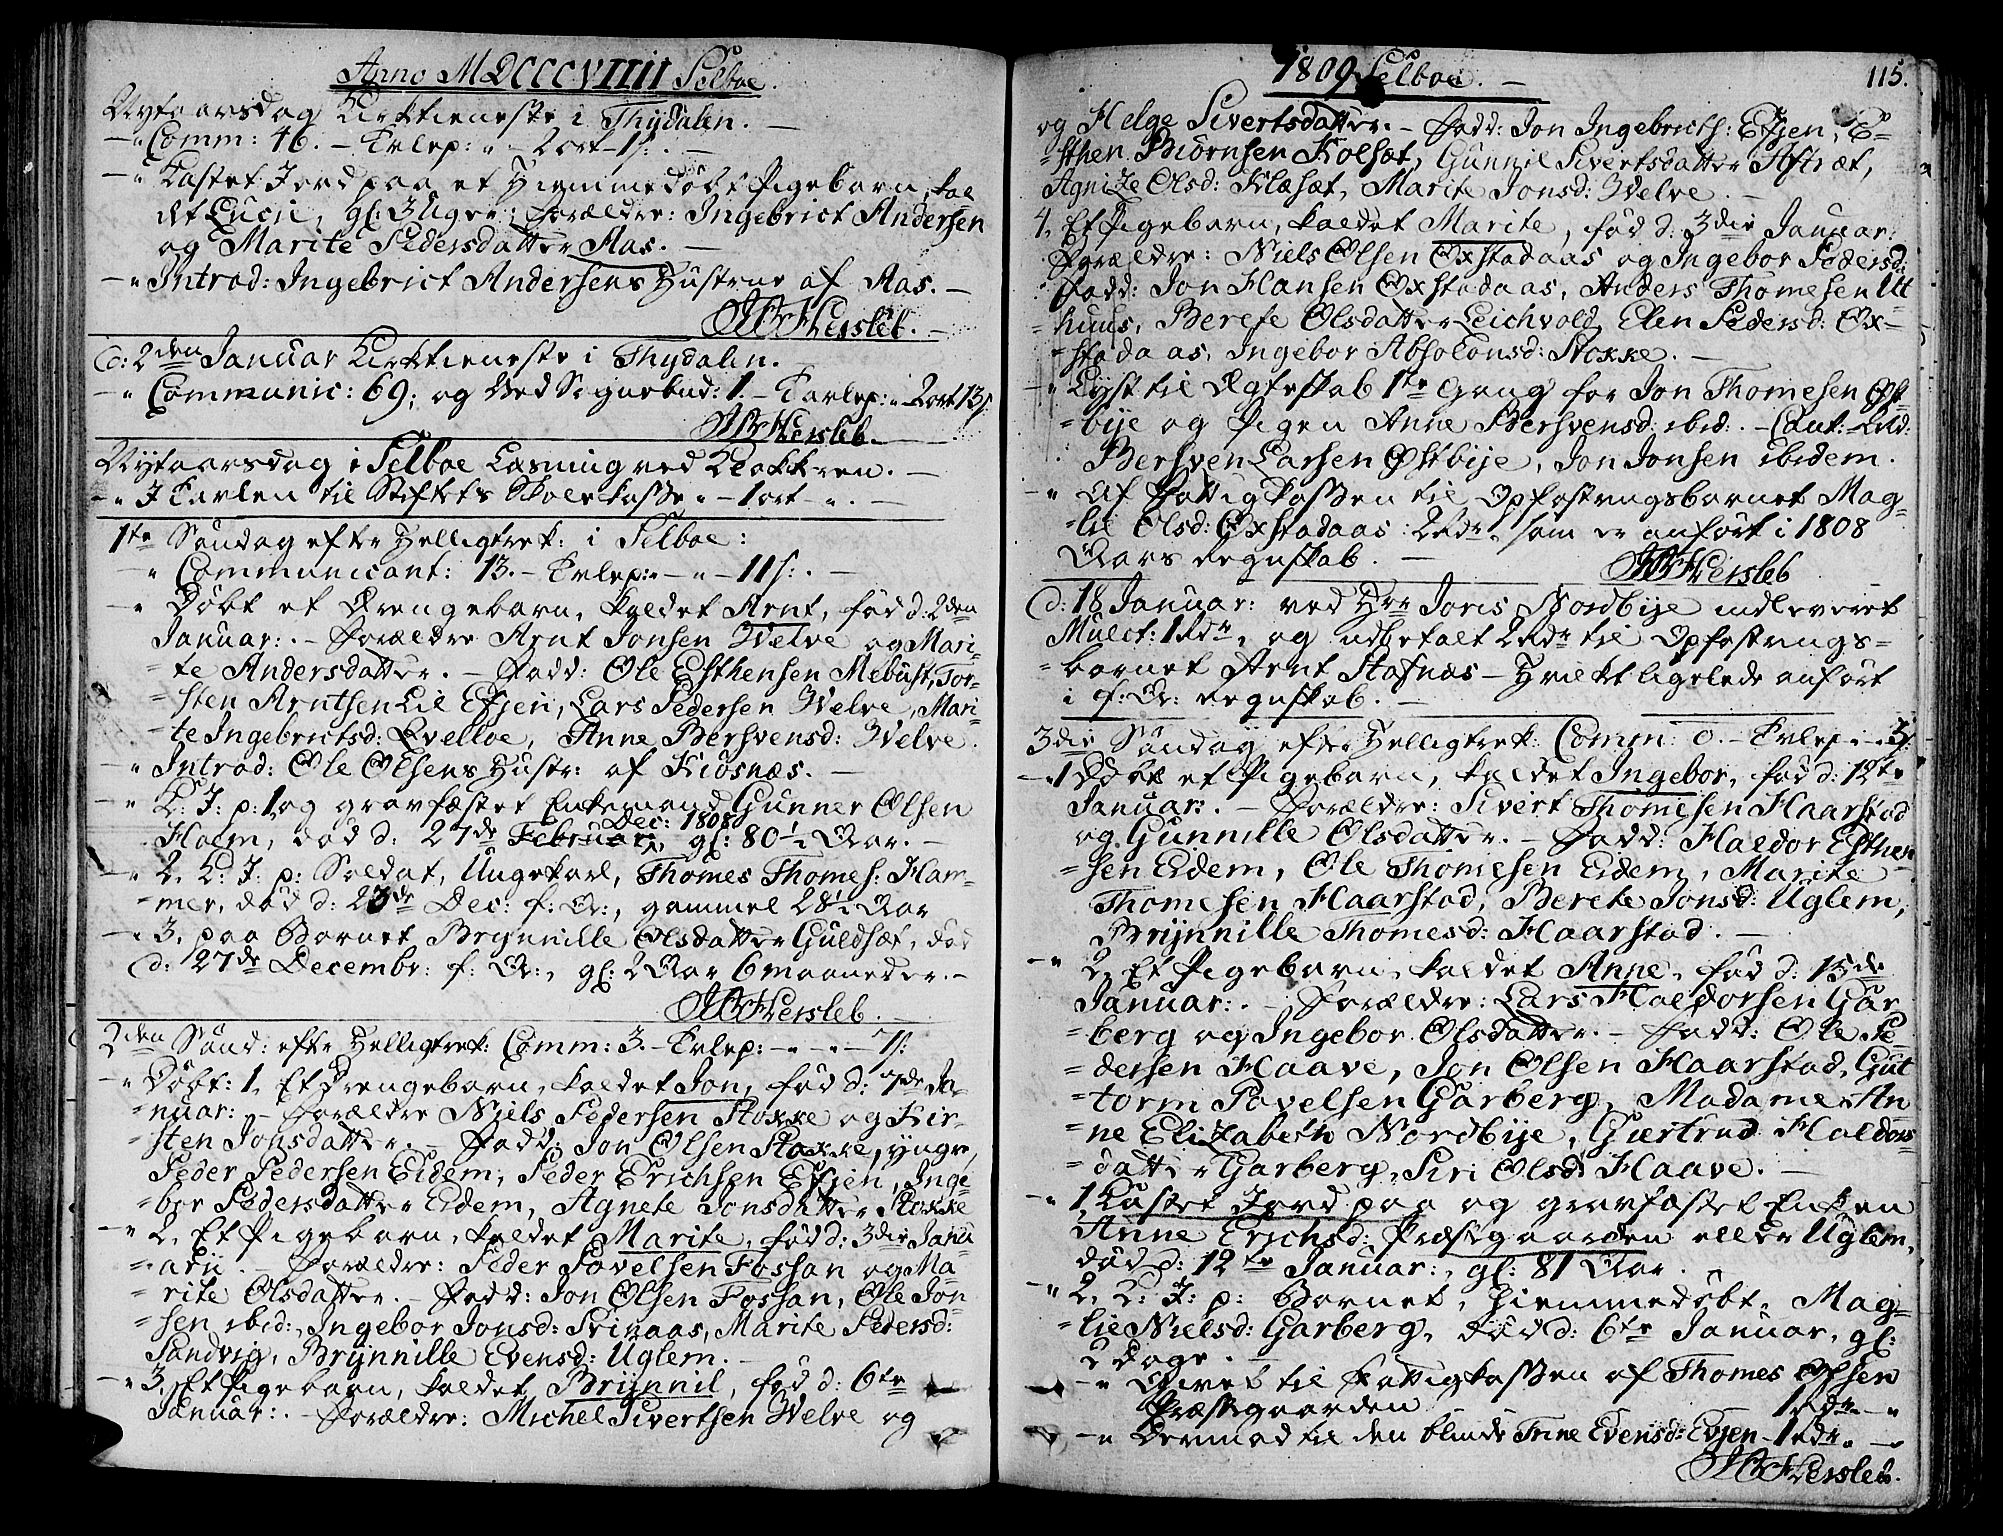 Anno MDCCCVIIII Selboe.
Nytaarsdag Kirktieneste i Thydalen. —
—„ Comm: 46. — Tvlep: „ — 2 ort 1 s. —
—„ Kastet Jord paa et Hiemmedøbt Pigebarn, kal-
det Luci, gl: 3 Uger; Forældre: Ingebrict Andersen
og Marite Pedersdatter Aas. —
—„ Introd: Ingebrict Andersens Hustrue af Aas. —
Hersleb. —
d: 2den Januar Kirktieneste i Thydalen.
—„ Communic: 69; og Ved Sognebud: 1. — Tavlep: „ 2 ort 13 s:
Hersleb.
Nytaarsdag i Selboe Læsning ved Klokkeren. —
—„ I Tavlen til Stiftets Skolekasse „ — 1 ort „. —
1te Søndag efter Helligtrek: i Selboe:
—„ Communicant: 13. — Tvlep: „ — „ — 11 s: . —
—„ Døbt et Drengebarn, kaldet Arnt, fød d: 2den
Januar: . — Forældre Arnt Jonsen Welve og Mari-
=te Andersdatter. — Fadd: Ole Esthensen Mebust, Tor-
=sten Arntsen Lil Efjen, Lars Pedersen Welve, Mari-
=te Ingebrictsd: Evelloe, Anne Bersvensd: Welve.
—„ Introd: Ole Olsens Hustr: af Kiosnæs. —
—„ K: J: p: 1, og gravfæstet Enkemand Gunner Olsen
Dec: 1808
Holm, død d: 27de Februar, gl: 80½ Aar. —
—„ 2, K: J: p: Soldat, Ungekarl, Thomes Thomes: Ham-
mer, død d: 23de Dec: f: A:, gammel 28½ Aar
—„ 3, paa Barnet Brynnille Olsdatter Guldsæt, død
d: 27de Decembr: f: A:, gl: 2 Aar 6 maaneder. —
Hersleb. —
2den Sønd: efter Helligtrek: Comm: 3. — Tvlep: — „ — „ — 7 s:
—„ Døbt: 1, Et Drengebarn, kaldet Jon, fød d: 7de Ja-
=nuar: — Forældre Niels Pedersen Stokke og Kir-
=sten Jonsdatter. — Fadd: Jon Olsen Stokke, yngre,
Peder Pedersen Eidem, Peder Erichsen Efjen, Inge-
=bor Pedersdatter Eidem, Agnete Jonsdatter Stokke
—„ 2, Et Pigebarn, kaldet Marite, fød d: 3die Janu-
=arii. — Forældre: Peder Povelsen Fossan og Ma-
rite Olsdatter. — Fadd: Jon Olsen Fossan, Ole Jon-
=sen ibid:, Ingebor Jonsd: Sviraas, Marite Pedersd:
Sandvig, Brynnille Evensd: Uglem. —
—„ 3, Et Pigebarn, kaldet Brynnil, fød d: 6te
Januar: . — Forældre: Michel Sivertsen Welve og
1809 Selboe. —
115.
og Helge Sivertsdatter. — Fadd: Jon Ingebricts: Efjen, E-
=sthen Biörnsen Kolset, Gunnil Sivertsdatter Aftræt,
Agnite Olsd: Klæsæt, Marite Jonsd: Welve.
4, Et Pigebarn, kaldet Marite, fød d: 3die Januar:
Forældre: Niels Olsen Oxstadaas og Ingebor Pedersd:
Fadd: Jon Hansen Oxstadaas, Anders Thomesen Ut
=huus, Berete Olsdatter Leichvold, Elen Pedersd: Ox-
=stadaas, Ingebor Absolonsd: Stokke. —
—„ Lyst til Ægteskab 1te Gang for Jon Thomesen Øst-
=bye og Pigen Anne Bersvensd: ibid: . — Caut: 
Bersven Larsen Østbye, Jon Jonsen ibidem.
—„ Af Fattigkassen til Opfostringsbarnet Mag-
=li Olsd: Oxstadaas 2 Rdr, som er anført i 1808
Aars Regnskab. —
Hersleb
d: 18 Januar: ved Hrr Joris Nordbye indleveret
Mulct: 1 Rdr, og udbetalt 2 Rdr til Opfostrings-
=barnet Arnt Stofnæs — Hvilket ligelede anført
i f: A: Regnskab. —
3die Søndag efter Helligtrek: Comm: 0. — Tvlep: „ 3 s:
—„ 1 Døbt et Pigebarn, kaldet Ingebor, fød d: 12te
Januar: . — Forældre: Sivert Thomesen Haarstad
og Gunnille Olsdatter. — Fadd: Haldor Esthen-
=sen Eidem, Ole Thomesen Eidem, Marite
Thomesen Haarstad, Berete Jonsd: Uglem,
Brynnille Thomesd: Haarstad. —
—„ 2, Et Pigebarn, kaldet Anne, fød d: 15de
Januar: . — Forældre: Lars Haldorsen Gar
=berg og Ingebor Olsdatter. — Fadd: Ole Pe-
=dersen Haave, Jon Olsen Haarstad, Gut
=torm Povelsen Garberg, Madame An
=ne Elizabeth Nordbye, Giertrud Haldors
=datter Garberg, Siri Olsd: Haave. —
—„ 1, Kastet Jord paa og gravfæstet Enken
Anne Erichsd: Præstgaarden eller Uglem,
død d: 12te Januar:, gl: 81 Aar.
—„ 2, K: J: p: Barnet, hiemmedøbt, Mag-
=li Nielsd: Garberg, død d: 6te Januar, gl:
2 Dage. —
—„ Givet til Fattigkassen af Thomes Olsen
Præstgaarden 1 Rdr „ „
—„ Dermed til den blinde Trine Evensd: Evjen — 1 Rdr. „ —
Hersleb.